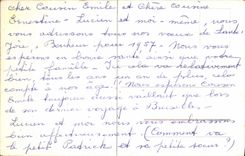 cher Cousin Emile et Chère Cousine
Ernestine - Lucien et moi-même, nous
vous adressons tous nos vœux de Santé
Joie, Bonheur pour 1957 - Nous vous
espérons en bonne santé ainsi que votre
petite famille - Ici cela va doucement
bien, tous les ans un an de plus, cela
compte à nos âge - Nous espérons Cousin
Emile toujours aussi vaillant que lors
de son dernier voyage à Bruxelles -
Lucien et moi nous vous embrassons
bien affectueusement - (Comment va
le petit Patrick et sa petite sœur ?)